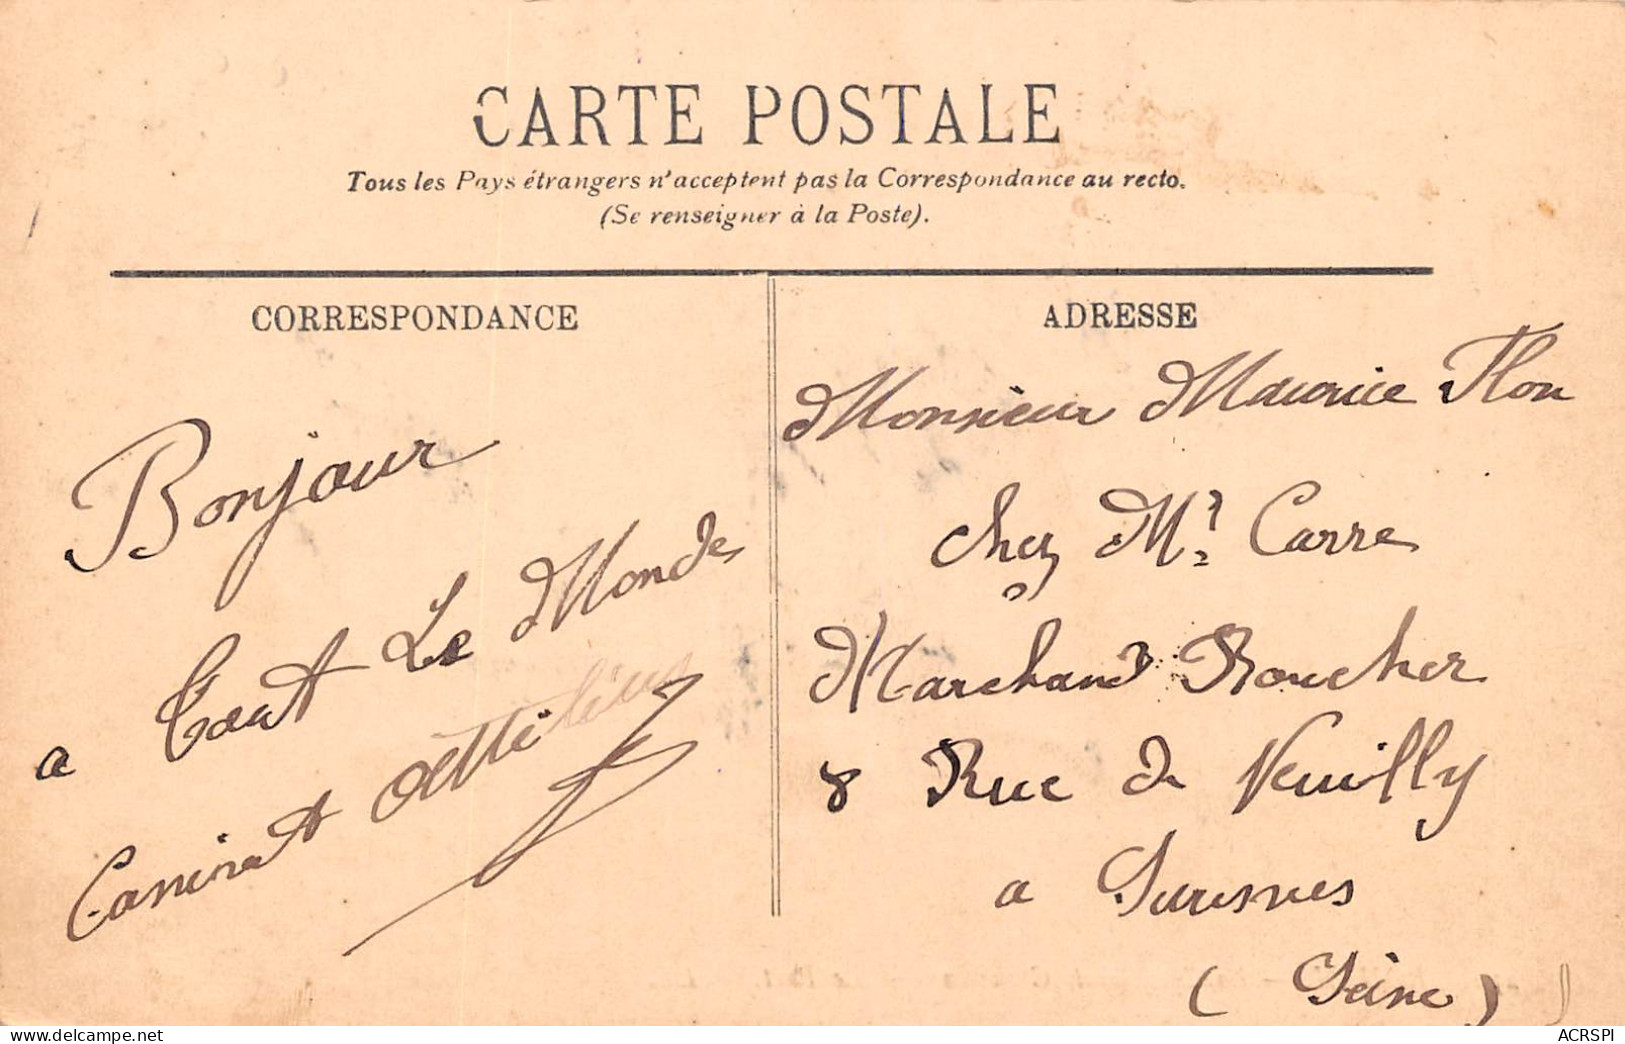 CARTE POSTALE
Tous les Pays étrangers n'acceptent pas la Correspondance au recto.
(Se renseigner à la Poste).
CORRESPONDANCE
Bonjour
a Tout Le Monde
ADRESSE
Monsieur Maurice
chez Mr Carre
Marchand Boucher
8 Rue de Neuilly
a Suresnes
(Seine)
ACRSPI